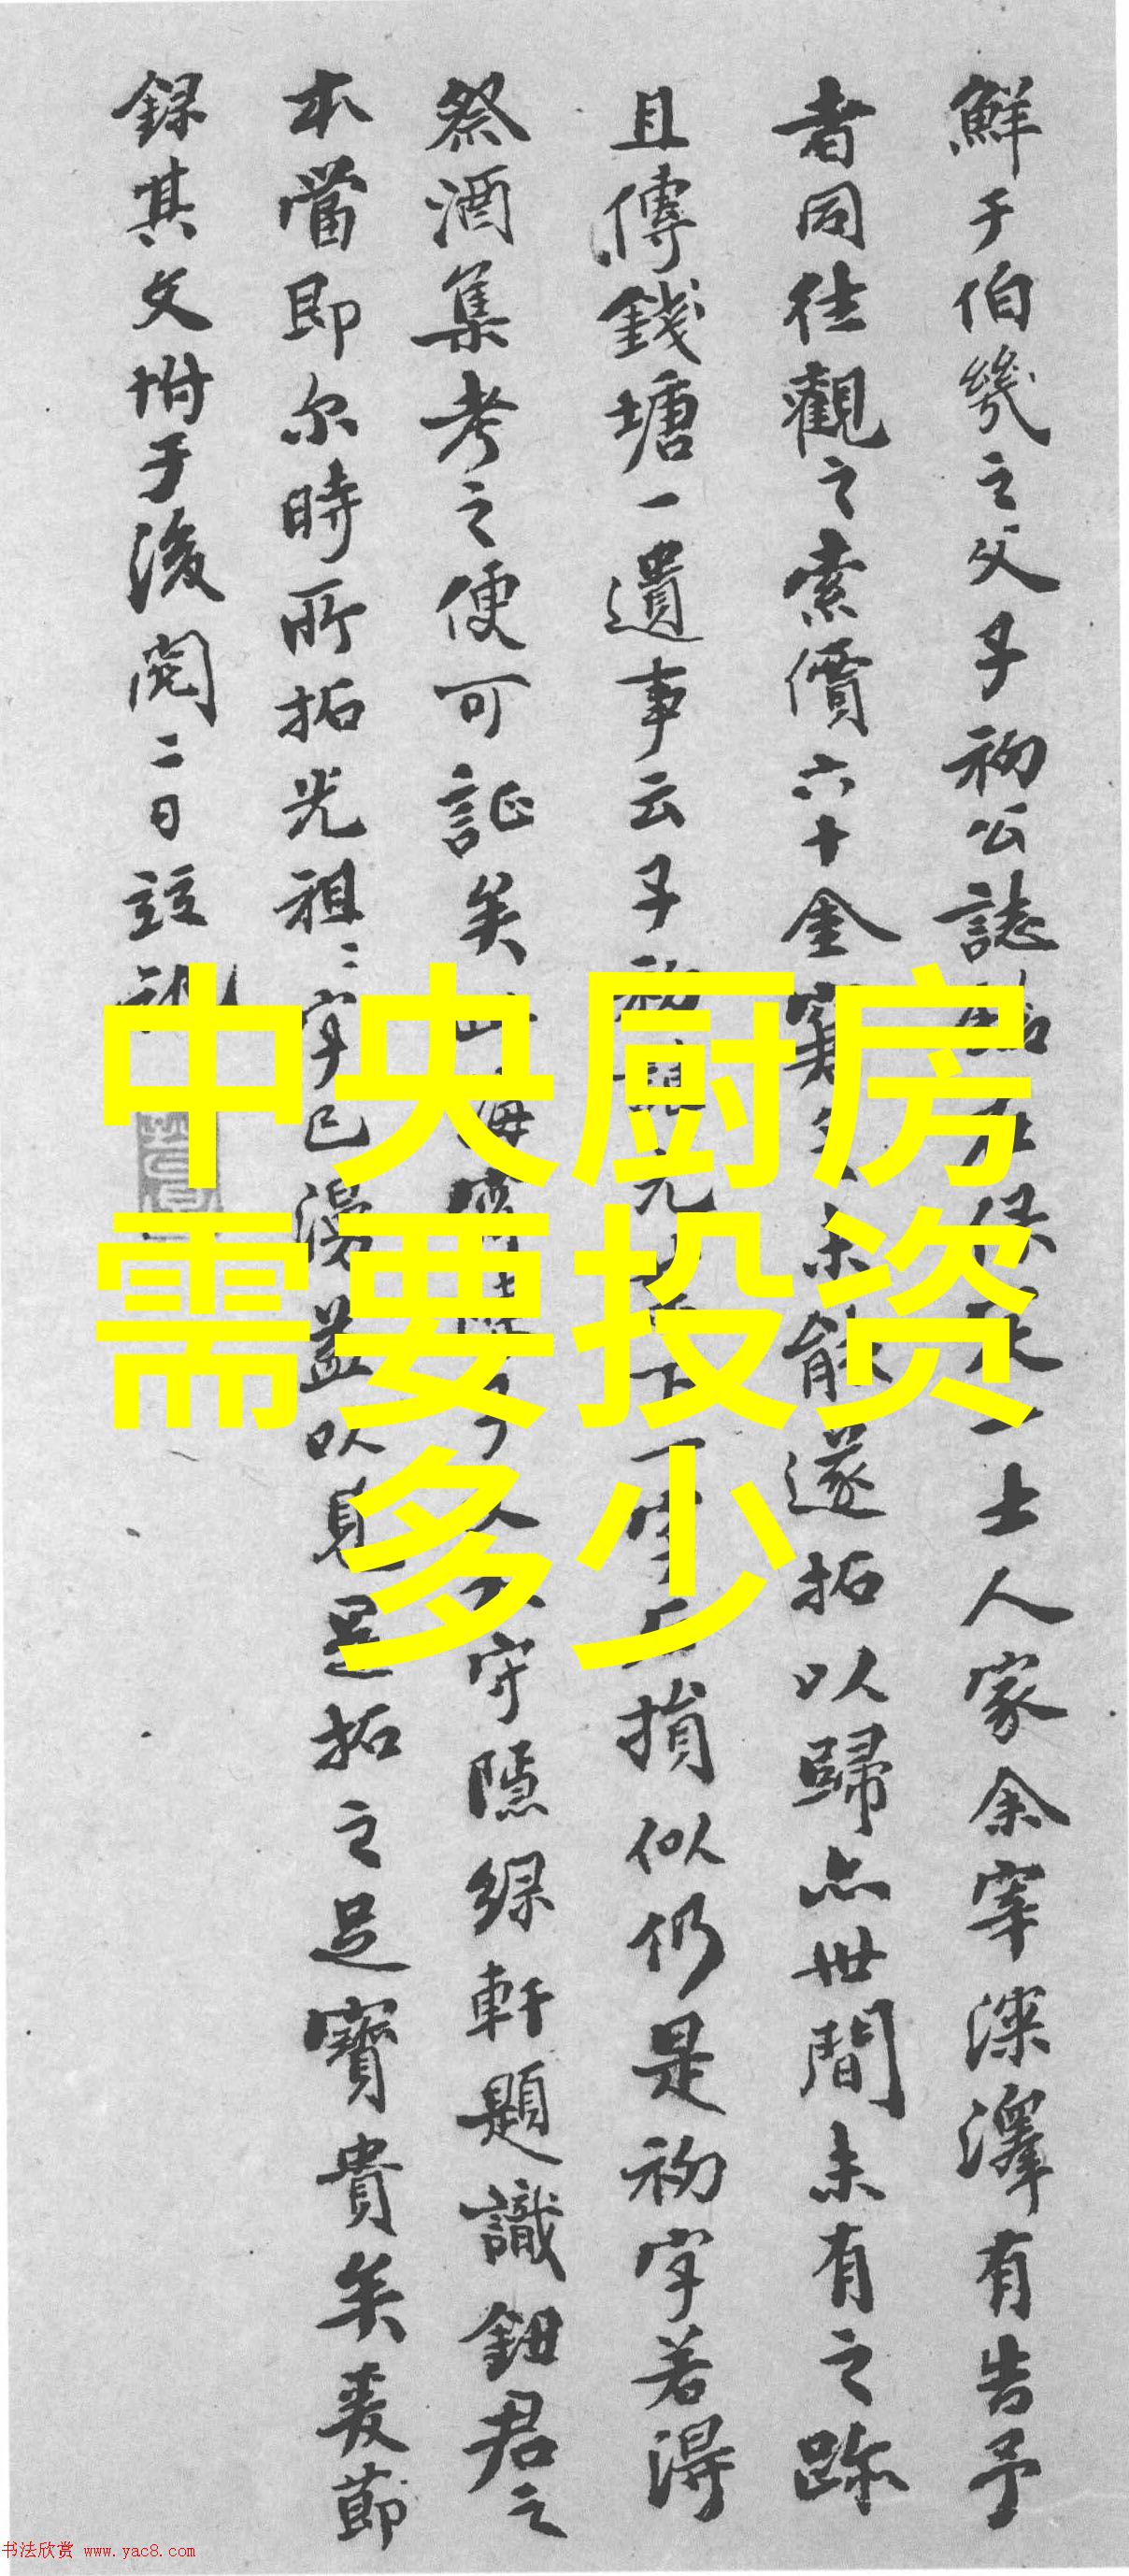 鮮于伯幾之父子初公誌
士人家余宰深澤有告予
者同往觀之索價六十金
能遂拓以歸亦世間未有之跡
且傳錢塘一遺事云子
損似仍是初字若得
祭酒集考之便可証矣
守隱綠軒題識鈕君之
本當即尔時所拓光祖〻字已漫蓋以
是拓之足寶貴矣爰節
錄其文坿于後閱二日
中央厨房
需要投资
多少
书法欣赏 www.yac8.com